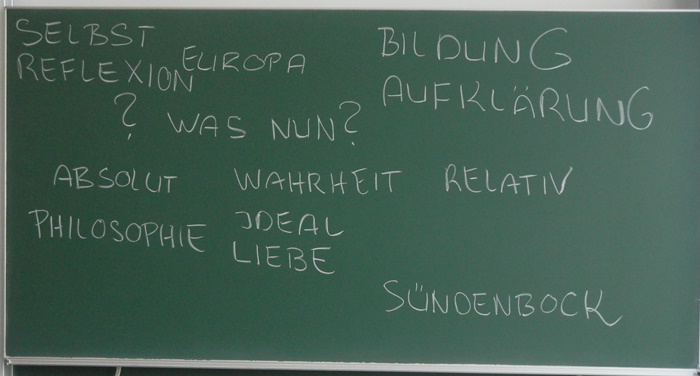 SELBST
REFLEXION
EUROPA
BILDUNG
AUFKLÄRUNG
? WAS NUN?
ABSOLUT WAHRHEIT RELATIV
PHILOSOPHIE IDEAL
LIEBE
SÜNDENBOCK